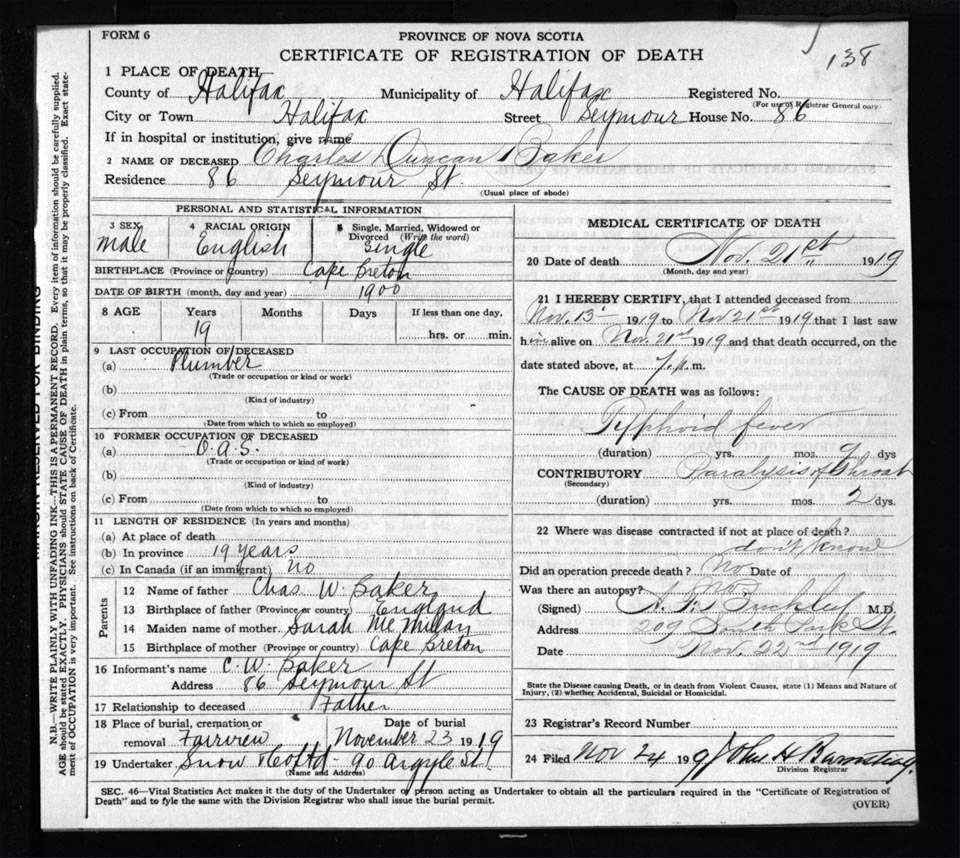 FORM 6
PROVINCE OF NOVA SCOTIA
138
CERTIFICATE OF REGISTRATION OF DEATH
1 PLACE OF DEATH
County of Halifax Municipality of Halifax Registered No.
(For use of Registrar General only)
City or Town Halifax Street Seymour House No. 86
If in hospital or institution, give name
2 NAME OF DECEASED Charles Duncan Baker
Residence 86 Seymour St.
(Usual place of abode)
PERSONAL AND STATISTICAL INFORMATION
3 SEX 4 RACIAL ORIGIN 5 Single, Married, Widowed or Divorced (Write the word)
Male English Single
BIRTHPLACE (Province or country) Cape Breton
DATE OF BIRTH (month, day and year) 1900
8 AGE Years Months Days If less than one day,
19 hrs. or min.
9 LAST OCCUPATION OF DECEASED
(a) Plumber
(Trade or occupation or kind or work)
(b)
(Kind of industry)
(c) From to
(Date from which to which so employed)
10 FORMER OCCUPATION OF DECEASED
(a) O.A.S.
(Trade or occupation or kind of work)
(b)
(Kind of industry)
(c) From to
(Date from which to which so employed)
11 LENGTH OF RESIDENCE (In years and months)
(a) At place of death
(b) In province 19 years
(c) In Canada (if an immigrant) no
Parents
12 Name of father Chas W. Baker
13 Birthplace of father (Province or country) England
14 Maiden name of mother Sarah McMillan
15 Birthplace of mother (Province or country) Cape Breton
16 Informant's name C. W. Baker
Address 86 Seymour St
17 Relationship to deceased Father
18 Place of burial, cremation or Date of burial
removal Fairview November 23 1919
19 Undertaker Snow & Co Ltd - 90 Argyle St.
(Name and Address)
MEDICAL CERTIFICATE OF DEATH
20 Date of death Nov. 21st 1919
(Month, day and year)
21 I HEREBY CERTIFY, that I attended deceased from
Nov. 13 1919 to Nov 21st 1919 that I last saw
him alive on Nov. 21st 1919 and that death occurred, on the
date stated above, at 7.p.m.
The CAUSE OF DEATH was as follows:
Typhoid fever
(duration) yrs. mos. 9 dys
CONTRIBUTORY Paralysis of throat
(Secondary)
(duration) yrs. mos. 2 dys.
22 Where was disease contracted if not at place of death?
don't know
Did an operation precede death? No Date of
Was there an autopsy? no
(Signed) Buckley M.D.
Address 209 South Park St.
Date Nov. 22nd 1919
State the Disease causing Death, or in death from Violent Causes, state (1) Means and Nature of
Injury, (2) whether Accidental, Suicidal or Homicidal.
23 Registrar's Record Number
24 Filed Nov 24 1919 John H
Division Registrar
SEC. 46—Vital Statistics Act makes it the duty of the Undertaker or person acting as Undertaker to obtain all the particulars required in the "Certificate of Registration of
Death" and to fyle the same with the Division Registrar who shall issue the burial permit.
(OVER)
MARGIN RESERVED FOR BINDING
N.B.—WRITE PLAINLY WITH UNFADING INK—THIS IS A PERMANENT RECORD. Every item of information should be carefully supplied.
AGE should be stated EXACTLY. PHYSICIANS should STATE CAUSE OF DEATH in plain terms, so that it may be properly classified. Exact state-
ment of OCCUPATION is very important. See instructions on back of Certificate.